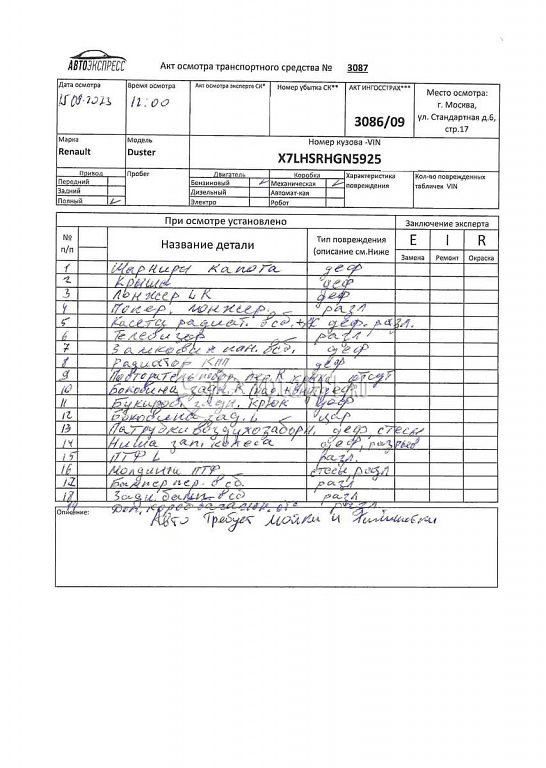 АВТОЭКСПРЕСС
Акт осмотра транспортного средства № 3087
Дата осмотра Время осмотра Акт осмотра эксперте СК* Номер убытка СК** АКТ ИНГОССТРАХ*** Место осмотра:
12:00 3086/09 г. Москва,
ул. Стандартная д.6,
стр.17
Марка Модель Номер кузова -VIN
Renault Duster X7LHSRHGN5925
Привод Пробег Двигатель Коробка Характеристика Кол-во поврежденных
Передний Бензиновый Механическая повреждения табличек VIN
Задний Дизельный Автомат-кая
Полный Электро Робот
При осмотре установлено Заключение эксперта
№ п/п Название детали Тип повреждения (описание см.Ниже E I R
Замена Ремонт Окраска
1 Шарниры капота деф
2 Крыша деф
3 Лонжер LK деф
4 Попер. лонжер. разл
5 Касеты радиат. деф. разл.
6 Телевизор разл
7 Замковая пан. деф
8 Радиатор КПП деф
9 крыла отсут
10 Боковина задн. R
11 задн. крюк деф
12 Боковина зад. L цар
13 Патрубки воздухозаборн. деф стесы
14 Ниша зап. колеса деф, разрыв
15 ПТФ L разл.
16 Молдинги ПТФ стесы разл
17 Бампер пер. в сб. разл
18 Задн. в сб разл
19 разл
Описание: Авто требует мойки и химчистки